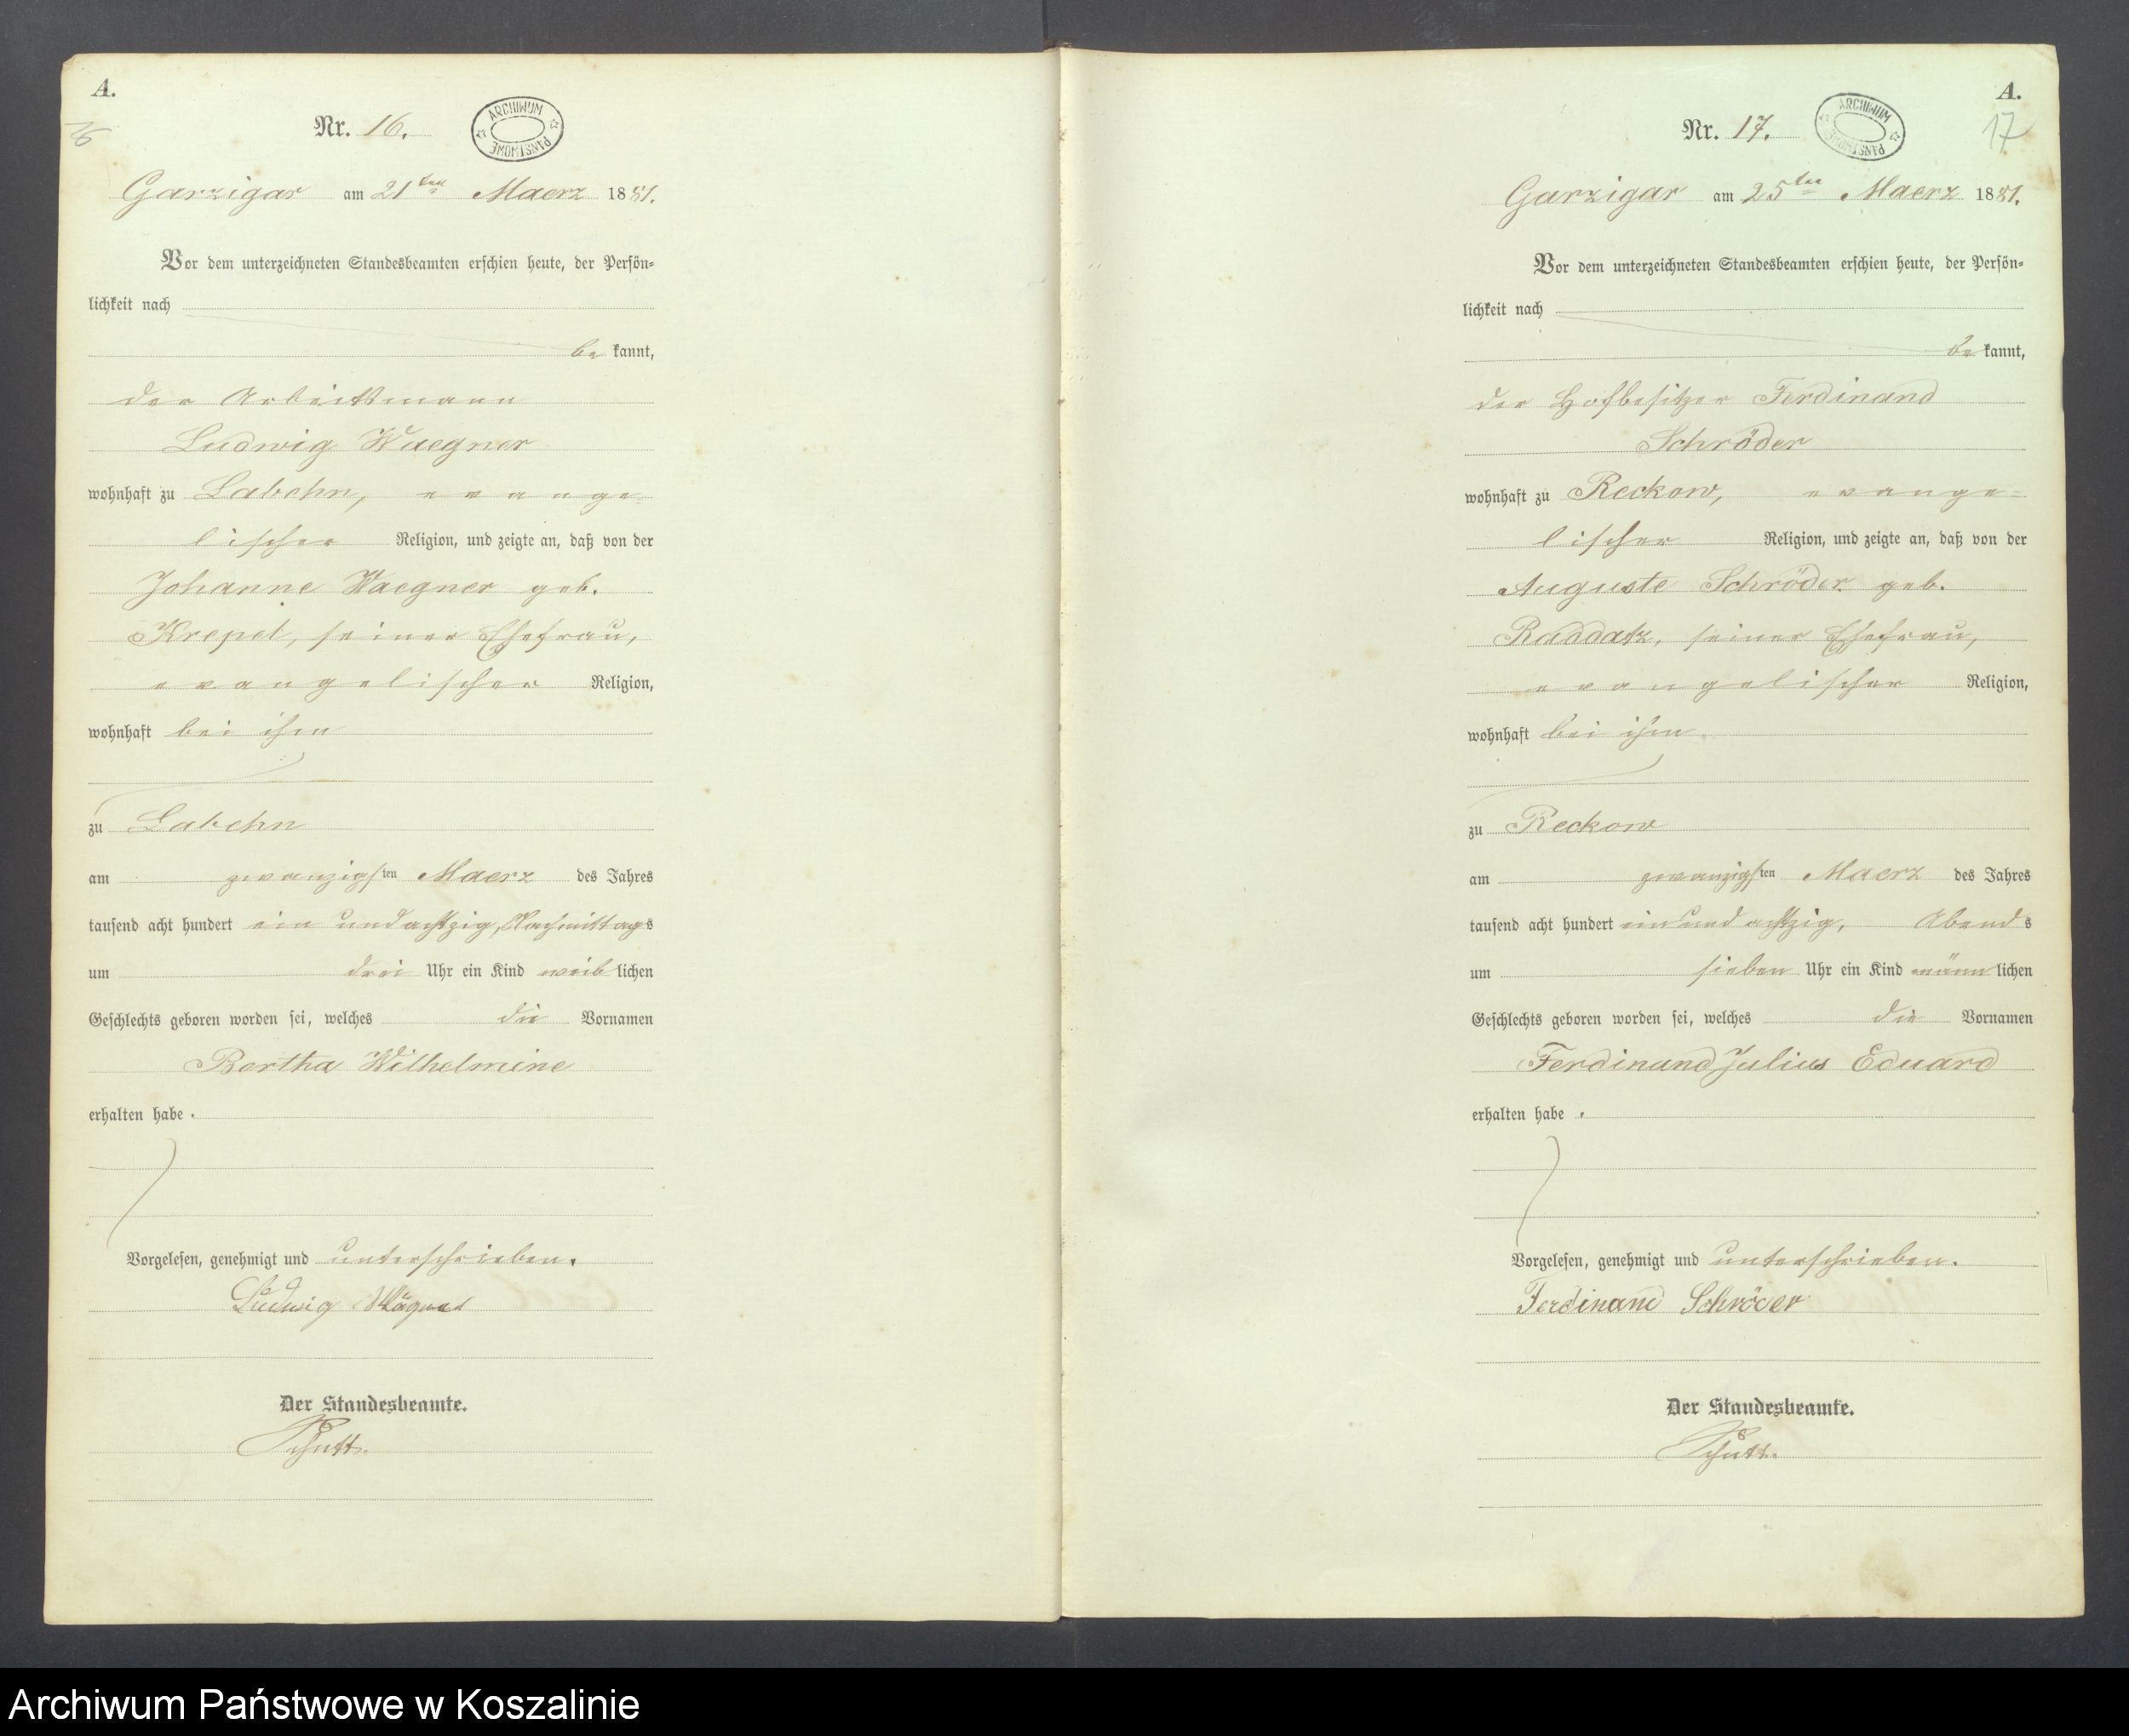 A.
16
Nr. 16.
ARCHIWUM PAŃSTWOWE
Garzigar am 21ten Maerz 1881.
Vor dem unterzeichneten Standesbeamten erschien heute, der Persön-
lichkeit nach
be kannt,
der Arbeitsmann
Ludwig Waegner
wohnhaft zu Labehn, evange-
lischer Religion, und zeigte an, daß von der
Johanne Waegner geb.
Krepel, seiner Ehefrau,
evangelischer Religion,
wohnhaft bei ihm
zu Labehn
am zwanzigsten Maerz des Jahres
tausend acht hundert ein und achtzig, Nachmittags
um drei Uhr ein Kind weiblichen
Geschlechts geboren worden sei, welches die Vornamen
Bertha Wilhelmine
erhalten habe.
Vorgelesen, genehmigt und unterschrieben.
Ludwig Wägner
Der Standesbeamte.
A.
17
Nr. 17.
ARCHIWUM PAŃSTWOWE
Garzigar am 25ten Maerz 1881.
Vor dem unterzeichneten Standesbeamten erschien heute, der Persön-
lichkeit nach
be kannt,
der Hofbesitzer Ferdinand
Schröder
wohnhaft zu Reckow, evange-
lischer Religion, und zeigte an, daß von der
Auguste Schröder geb.
Raddatz, seiner Ehefrau,
evangelischer Religion,
wohnhaft bei ihm
zu Reckow
am zwanzigsten Maerz des Jahres
tausend acht hundert ein und achtzig, Abends
um sieben Uhr ein Kind männlichen
Geschlechts geboren worden sei, welches die Vornamen
Ferdinand Julius Eduard
erhalten habe.
Vorgelesen, genehmigt und unterschrieben.
Ferdinand Schröder
Der Standesbeamte.
Archiwum Państwowe w Koszalinie